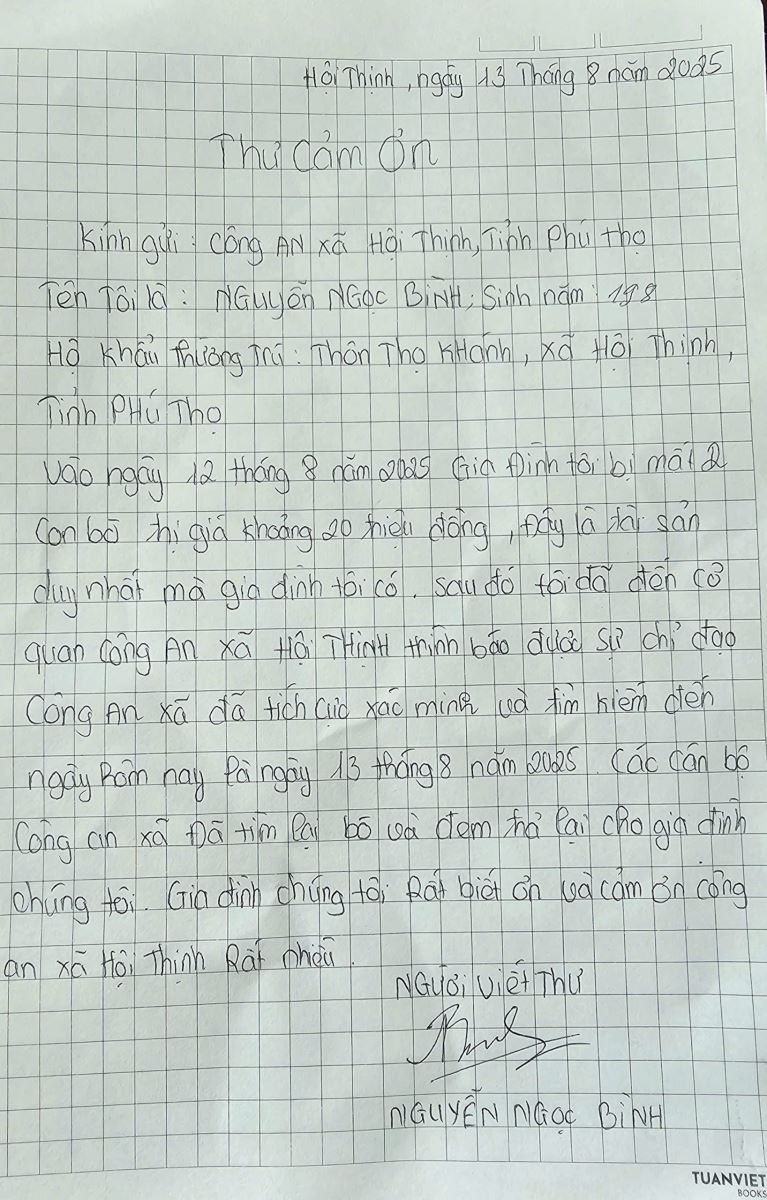 Hội Thịnh, ngày 13 Tháng 8 năm 2025
Thư Cảm Ơn
Kính gửi : Công AN xã Hội Thịnh, Tỉnh Phú Thọ
Tên Tôi là : NGuyễn NGọc BÌNH; Sinh năm : 198
Hộ Khẩu Thường Trú : Thôn Thọ KHánh, xã Hội Thịnh,
Tỉnh PHÚ Thọ
Vào ngày 12 tháng 8 năm 2025 Gia Đình tôi bị mất 2
Con bò trị giá khoảng 20 triệu đồng, Đây là tài sản
duy nhất mà gia đình tôi có. Sau đó tôi đã đến cơ
quan Công An xã Hội THỊNH trình báo được sự chỉ đạo
Công An xã đã tích cực xác minh và tìm kiếm đến
ngày hôm nay là ngày 13 tháng 8 năm 2025. Các cán bộ
Công an xã Đã tìm lại bò và đem trả lại cho gia đình
chúng tôi. Gia đình chúng tôi Rất biết ơn và cảm ơn công
an xã Hội Thịnh Rất nhiều.
NGười Viết Thư
NGUYỄN NGọc BÌNH
TUANVIET
BOOKS